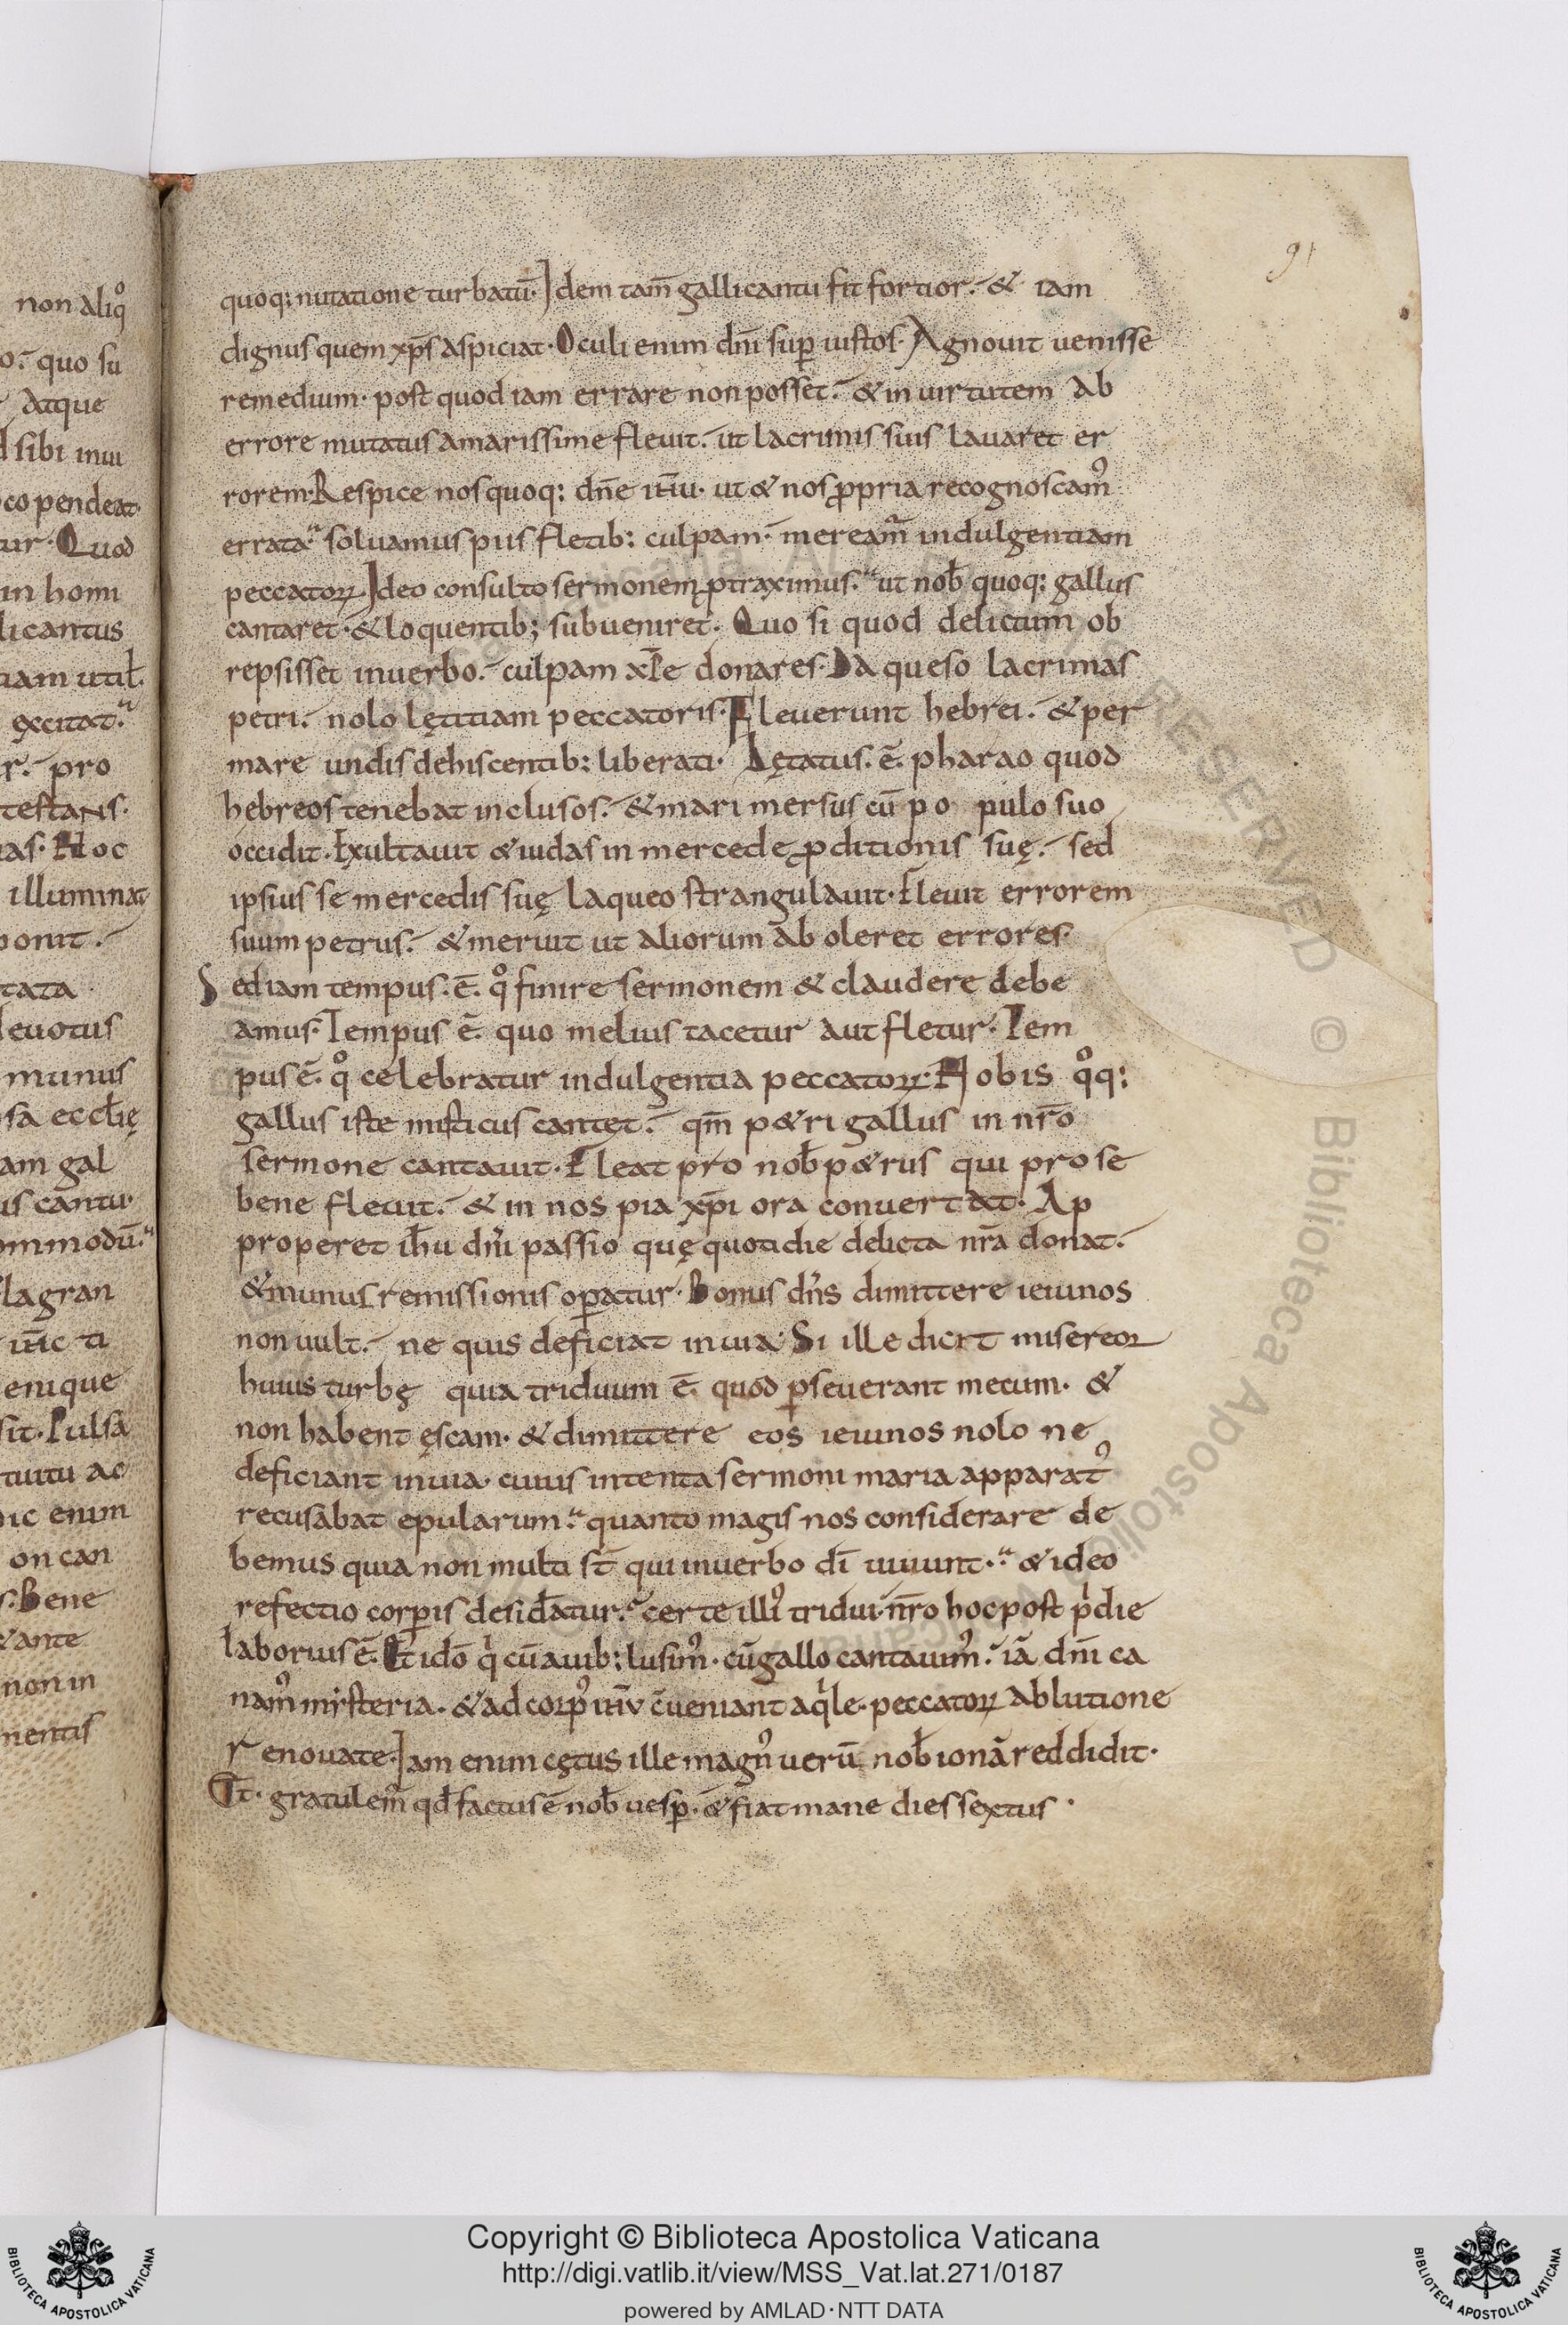 non aliq̊
o. quo su
atque
d sibi inui
co pendeat.
tur. Quod
in homi
licantus
tiam util.
excitat.
r. pro
testans.
as. Hoc
illuminat
ponit.
tata
deuotus
munus
sa ecclię
am gal
us cantu.
ommodū.
flagran
ti
enique
sit. Pulsa
tuitu ac
hic enim
on can
s. Bene
& ante
non in
mentis
91
quoq; nutatione turbatū. Idem tam̄ gallicantu fit fortior. & iam
dignus quem xp̄s aspiciat. Oculi enim dn̄i sup̄ iustos. Agnouit uenisse
remedium. post quod iam errare non posset. & in uirtutem ab
errore mutatus amarissime fleuit. ut lacrimis suis lauaret er
rorem. Respice nos quoq; dn̄e ih̄u. ut & nos ꝓpria recognoscamꝰ
errata. soluamus piis fletib; culpam. mereamᷣ indulgentiam
peccatoꝝ. Ideo consulto sermonem ꝓtraximus. ut nob̄ quoq; gallus
cantaret. & loquentib; subueniret. Quo si quod delictum ob
repsisset in uerbo. culpam xp̄e donares. Da queso lacrimas
petri. nolo lętitiam peccatoris. Fleuerunt hebrei. & per
mare undis dehiscentib; liberati. Lętatus. ē. pharao quod
hebreos tenebat inclusos. & mari mersus cū po pulo suo
occidit. Exultauit & iudas in mercede ꝓditionis suę. sed
ipsius se mercedis suę laqueo strangulauit. Fleuit errorem
suum petrus. & meruit ut aliorum aboleret errores.
Sed iam tempus. ē. q̊ finire sermonem & claudere debe
amus. Tempus ē. quo melius tacetur aut fletur. Tem
pus ē. q̊ celebratur indulgentia peccatoꝝ. Nobis q̊q;
gallus iste misticus cantęt. qm̄ p&ri gallus in nr̄o
sermone cantauit. Fleat pro nob̄ p&rus qui pro se
bene fleuit. & in nos pia xp̄i ora conuertat. Ap
properet ih̄u dn̄i passio quę quotidie delicta nr̄a donat.
& munus remissionis oꝑatur. Bonus dn̄s dimittere ieiunos
non uult. ne quis deficiat in uia. Si ille dicit misereoꝛ
huius turbę quia triduum ē. quod ꝑseuerant mecum. &
non habent ęscam. & dimittere eos ieiunos nolo ne
deficiant in uia. cuius intenta sermoni maria apparatꝰ
recusabat epularum. quanto magis nos considerare de
bemus quia non multi st̄ qui in uerbo dī uiuunt. & ideo
refectio corꝑis desid̄atur. certe illiꝰ tridui. nr̄o hoc post p̍die
laborius ē. Et idō q̍ cū auib; lusimꝰ. cū gallo cantauimꝰ. iā dn̄i ca
namꝰ mẏsteria. & ad corpꝰ ih̄v c̄ueniant aq̍le. peccatoꝝ ablutione
renouate. Iam enim cętus ille magnꝰ uerū nob̄ ionā reddidit.
Et. gratulemᷣ qd̄ factus ē nob̄ uesꝑ. & fiat mane dies sextus.
Copyright © Biblioteca Apostolica Vaticana
http://digi.vatlib.it/view/MSS_Vat.lat.271/0187
powered by AMLAD·NTT DATA
BIBLIOTECA APOSTOLICA VATICANA
BIBLIOTECA APOSTOLICA VATICANA